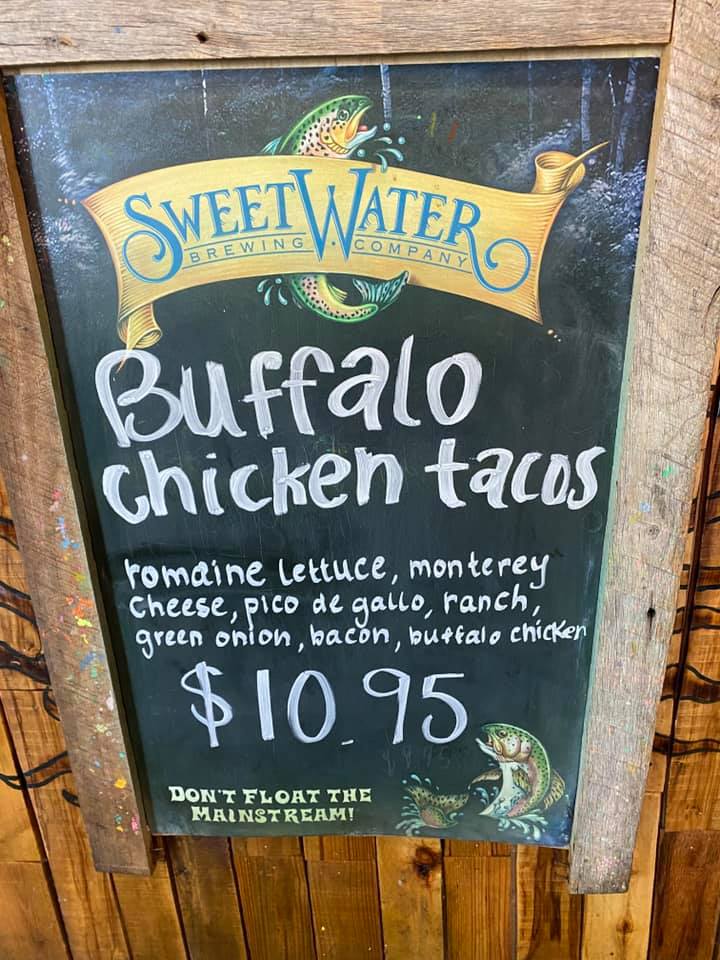 SWEETWATER
BREWING COMPANY
Buffalo
chicken tacos
romaine lettuce, monterey
cheese, pico de gallo, ranch,
green onion, bacon, buffalo chicken
$10.95
DON'T FLOAT THE
MAINSTREAM!